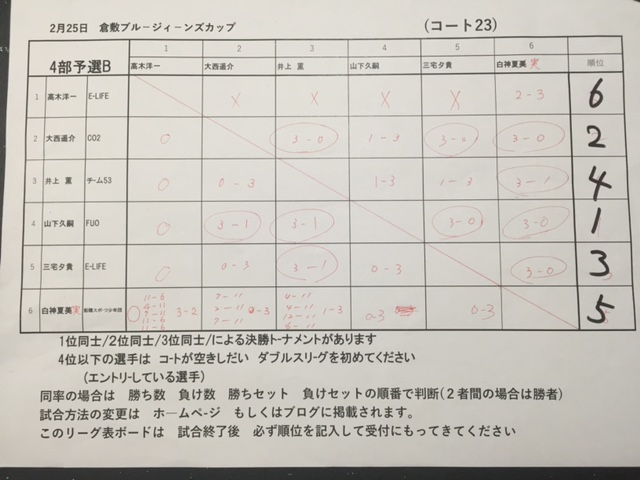 2月25日 倉敷ブルージィーンズカップ (コート23)
4部予選B 1 2 3 4 5 6 順位
高木洋一 大西遥介 井上 薫 山下久嗣 三宅夕貴 白神夏美 実
1 高木洋一 E-LIFE X X X X 2-3 6
2 大西遥介 CO2 0 3-0 1-3 3-0 3-0 2
3 井上 薫 チーム53 0 0-3 1-3 1-3 3-1 4
4 山下久嗣 FUO 0 3-1 3-1 3-0 3-0 1
5 三宅夕貴 E-LIFE 0 0-3 3-1 0-3 3-0 3
6 白神夏美 実 0 3-2 0-3 1-3 0-3 0-3 5
1位同士/2位同士/3位同士/による決勝トーナメントがあります
4位以下の選手は コートが空きしだい ダブルスリーグを初めてください
(エントリーしている選手)
同率の場合は 勝ち数 負け数 勝ちセット 負けセットの順番で判断(2者間の場合は勝者)
試合方法の変更は ホームページ もしくはブログに掲載されます。
このリーグ表ボードは 試合終了後 必ず順位を記入して受付にもってきてください